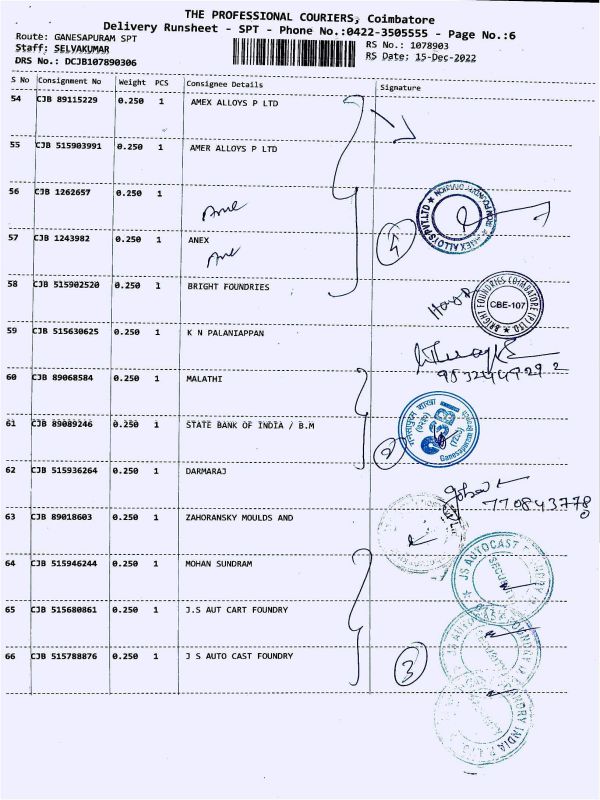 THE PROFESSIONAL COURIERS, Coimbatore
Delivery Runsheet - SPT - Phone No.:0422-3505555 - Page No.:6
Route: GANESAPURAM SPT
RS No.: 1078903
Staff: SELVAKUMAR
RS Date: 15-Dec-2022
DRS No.: DCJB107890306
S No Consignment No Weight PCS Consignee Details Signature
54 CJB 89115229 0.250 1 AMEX ALLOYS P LTD
55 CJB 515903991 0.250 1 AMER ALLOYS P LTD
56 CJB 1262657 0.250 1
57 CJB 1243982 0.250 1 ANEX
4
58 CJB 515902520 0.250 1 BRIGHT FOUNDRIES
BRIGHT FOUNDRIES COIMBATORE (P) LTD.
CBE-107
59 CJB 515630625 0.250 1 K N PALANIAPPAN
60 CJB 89068584 0.250 1 MALATHI
61 CJB 89089246 0.250 1 STATE BANK OF INDIA / B.M
2
62 CJB 515936264 0.250 1 DARMARAJ
7708437780
63 CJB 89018603 0.250 1 ZAHORANSKY MOULDS AND
64 CJB 515946244 0.250 1 MOHAN SUNDRAM
JS AUTOCAST FOUNDRY
SECURITY
65 CJB 515680861 0.250 1 J.S AUT CART FOUNDRY
66 CJB 515788876 0.250 1 J S AUTO CAST FOUNDRY
3